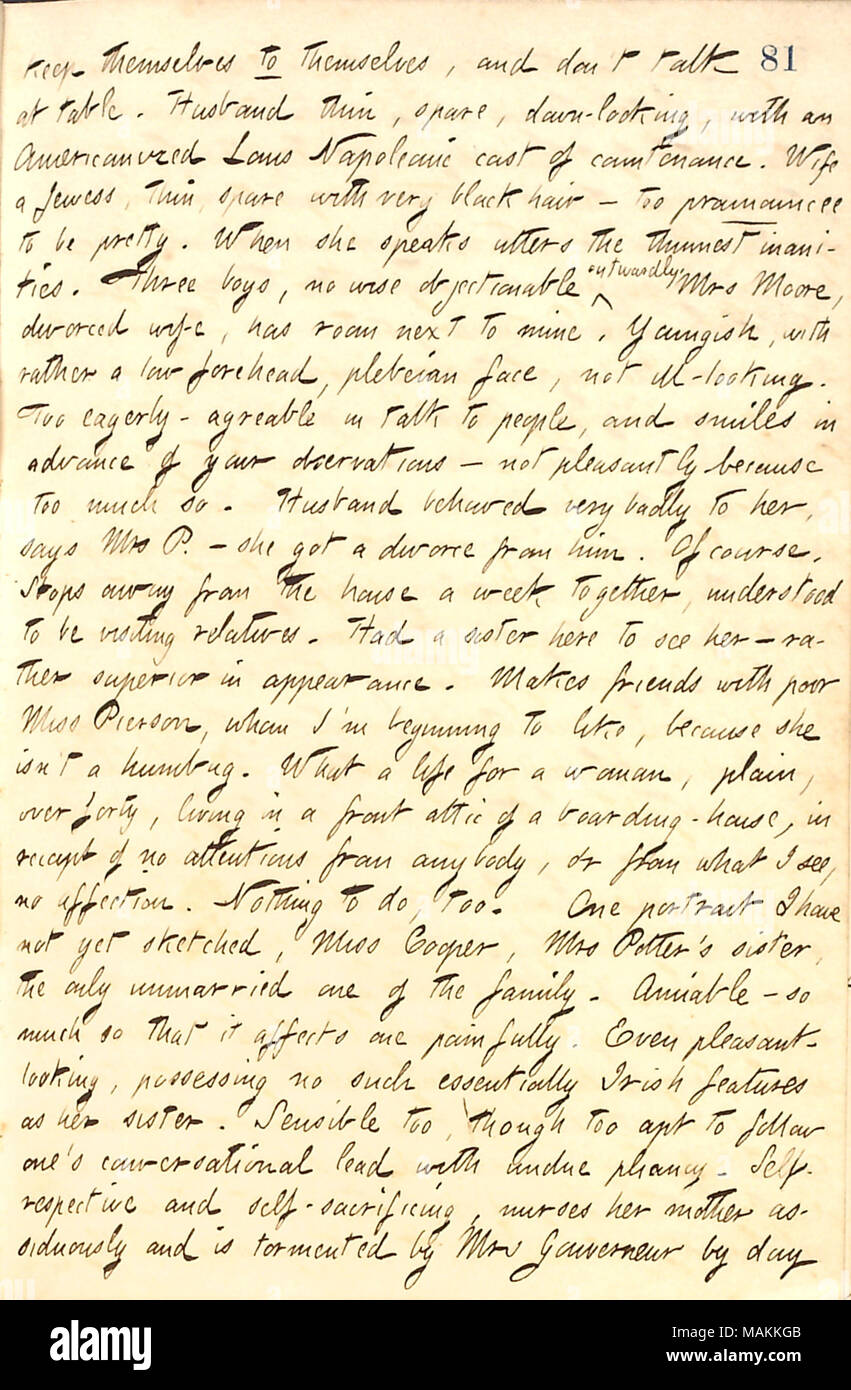 keep themselves to themselves, and don't talk 81
at table. Husband thin, spare, down-looking, with an
Americanized Louis Napoleonic cast of countenance. Wife
a Jewess, thin, spare with very black hair — too pronouncee
to be pretty. When she speaks utters the thinnest inani-
ties. Three boys, no wise objectionable outwardly. Mrs Moore,
divorced wife, has room next to mine. Youngish, with
rather a low forehead, plebeian face, not ill-looking.
Too eagerly-agreable in talk to people, and smiles in
advance of your observations — not pleasantly because
too much so. Husband behaved very badly to her,
says Mrs P. — she got a divorce from him. Of course.
Stops away from the house a week together, understood
to be visiting relatives. Had a sister here to see her — ra-
ther superior in appearance. Makes friends with poor
Miss Pierson, whom I'm beginning to like, because she
isn't a humbug. What a life for a woman, plain,
over forty, living in a front attic of a boarding-house, in
receipt of no attentions from anybody, or from what I see,
no affection. Nothing to do, too. One portrait I have
not yet sketched, Miss Cooper, Mrs Potter's sister,
the only unmarried one of the family. Amiable — so
much so that it affects one painfully. Even pleasant-
looking, possessing no such essentially Irish features
as her sister. Sensible too, though too apt to follow
one's conversational lead with undue pliancy. Self-
respective and self-sacrificing, nurses her mother as-
siduously and is tormented by Mrs Gouverneur by day
alamy
Image ID: MAKKGB
www.alamy.com